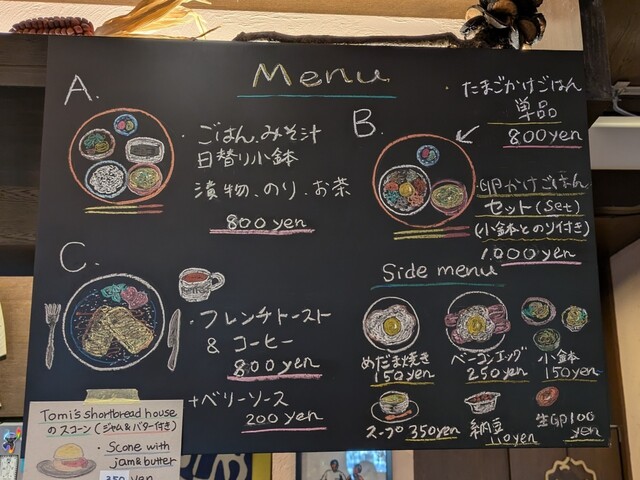 Menu
A.
・ごはん、みそ汁
日替り小鉢
漬物、のり、お茶
800 yen
B.
・たまごかけごはん
単品
800 yen
・卵かけごはん
セット(Set)
(小鉢とのり付き)
1,000 yen
C.
・フレンチトースト
& コーヒー
800 yen
+ベリーソース
200 yen
Side menu
めだま焼き
150 yen
ベーコンエッグ
250 yen
小鉢
150 yen
スープ 350 yen
納豆
110 yen
生卵 100
yen
Tomi's shortbread house
のスコーン(ジャム&バター付き)
・Scone with
jam & butter
350 yen